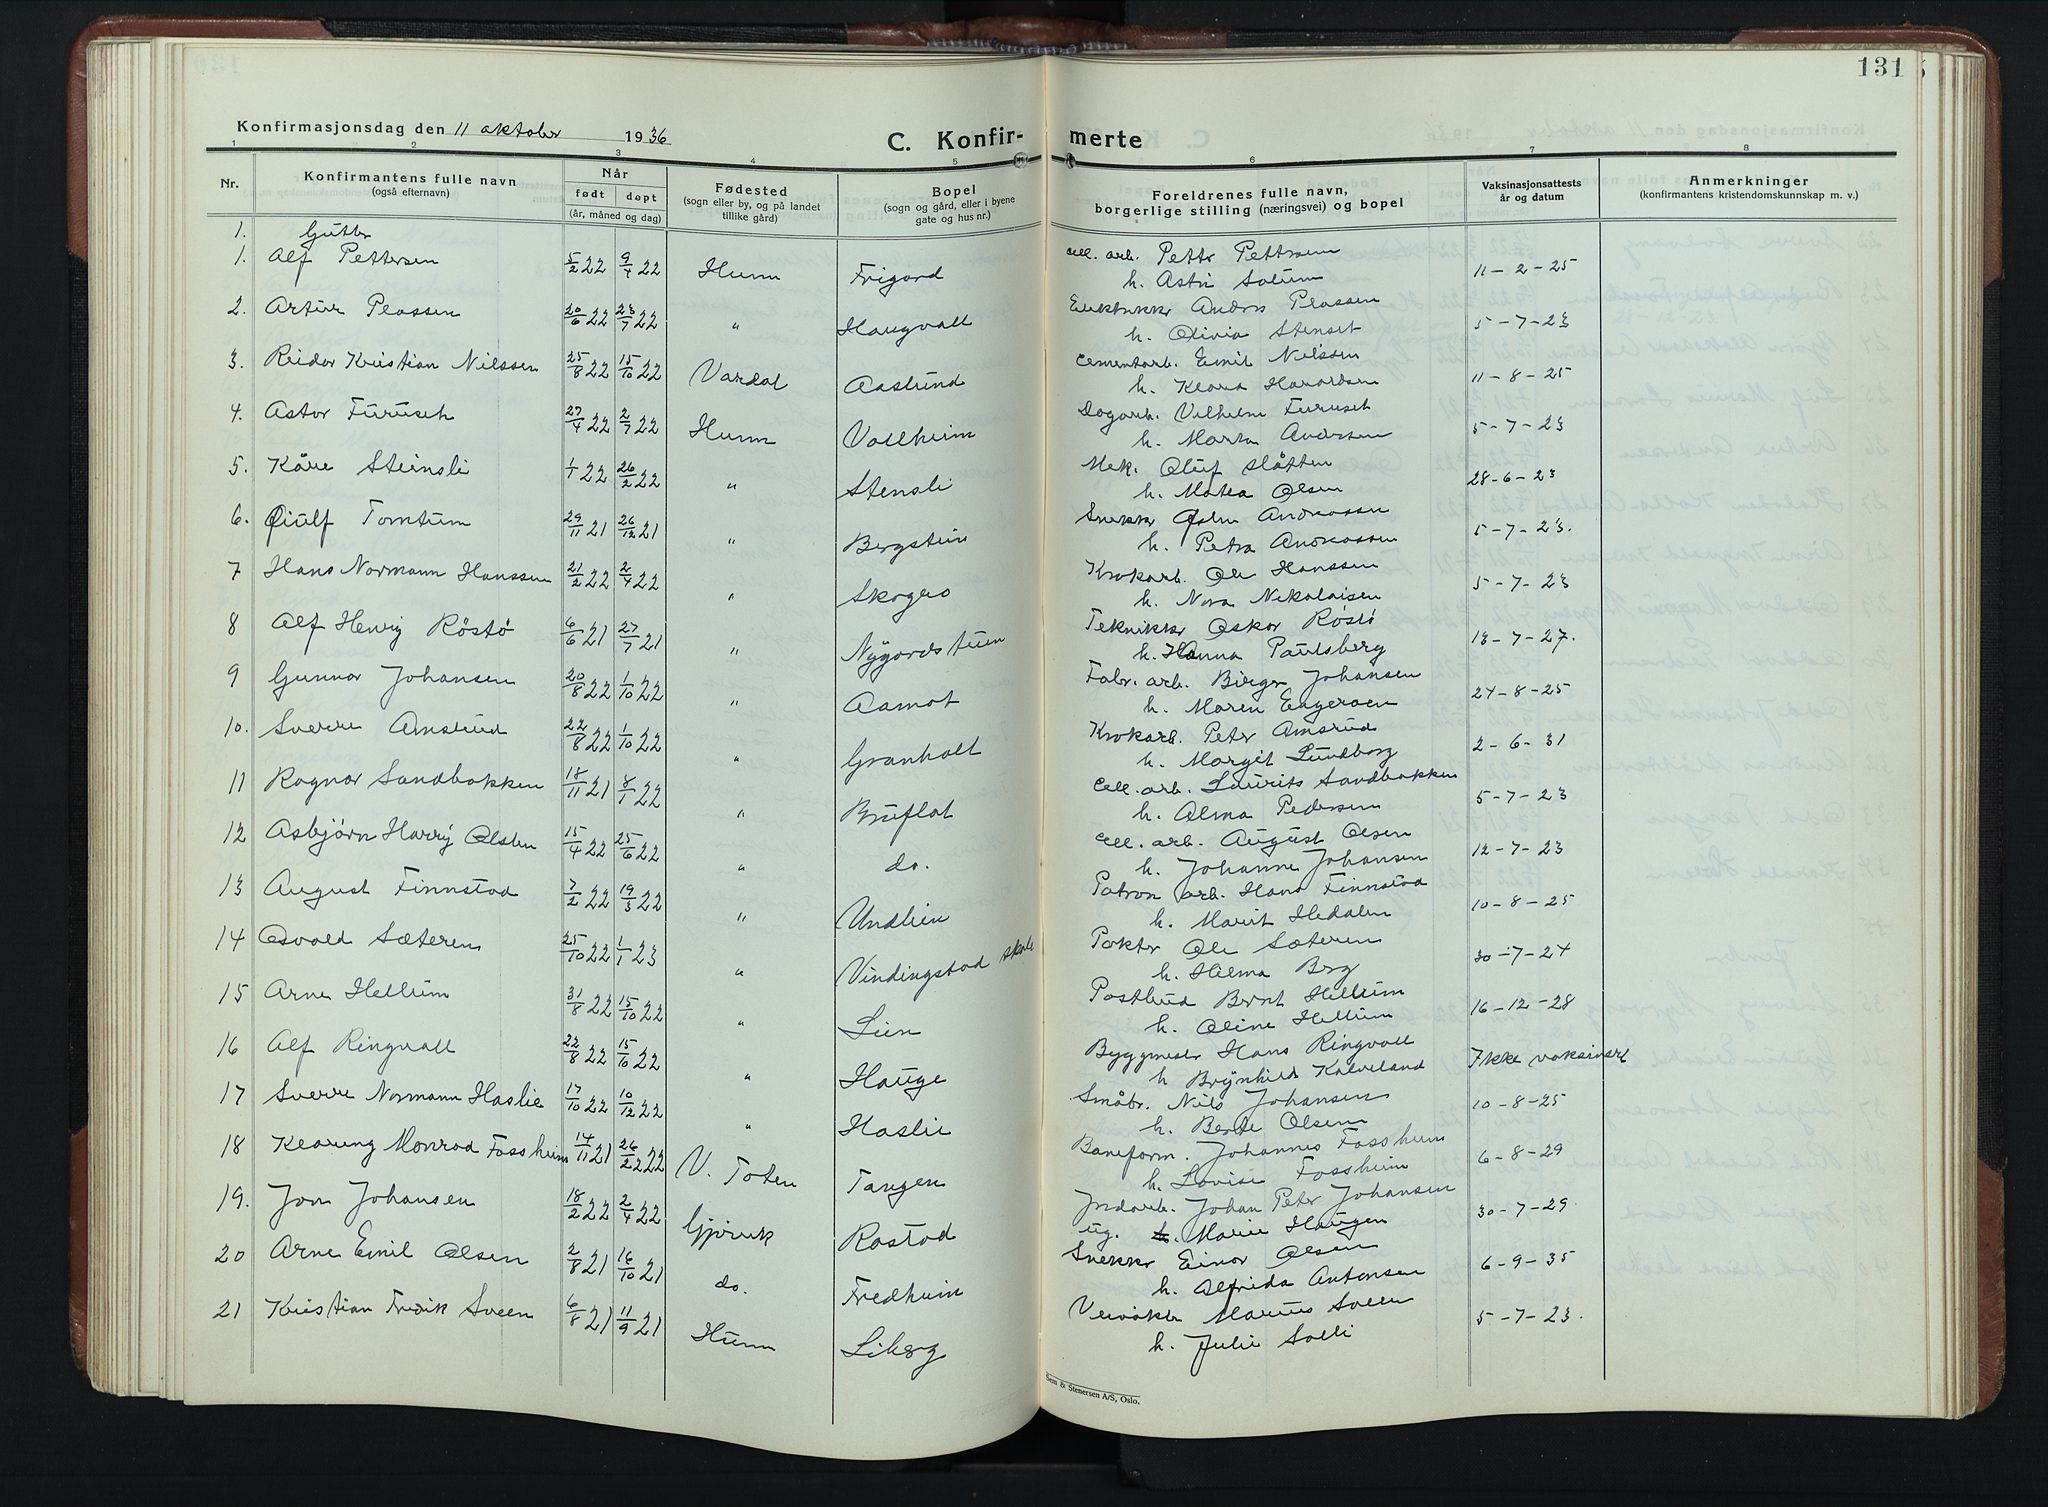 131
Konfirmasjonsdag den 11 oktober 1936
C. Konfir-merte
1 2 3 4 5 6 7 8
Nr. Konfirmantens fulle navn (også efternavn) Når født døpt (år, måned og dag) Fødested (sogn eller by, og på landet tillike gård) Bopel (sogn og gård, eller i byene gate og hus nr.) Foreldrenes fulle navn, borgerlige stilling (næringsvei) og bopel Vaksinasjonsattests år og datum Anmerkninger (konfirmantens kristendomskunnskap m. v.)
1. Gutter
1. Alf Pettersen 5/2 22 9/4 22 Hunn Frigard Cell. arb. Petter Pettersen
h. Astri Solum 11-2-25
2. Artur Plassen 20/6 22 23/7 22 " Haugvall Elektrikker Anders Plassen
h. Olivia Stenset 5-7-23
3. Reidar Kristian Nilssen 25/8 22 15/10 22 Vardal Aaslund Cementarb. Emil Nilssen
h. Klara Havardsen 11-8-25
4. Astor Furuseth 27/4 22 2/7 22 Hunn Vollheim Dagarb. Vilhelm Furuset
h. Marta Andersen 5-7-23
5. Kåre Steinsli 1/1 22 26/2 22 " Stensli Mek. Oluf Slåtten
h. Matea Olsen 28-6-23
6. Øiulf Tomtum 29/11 21 26/12 21 " Bergstein Snekker Andreassen
h. Petra Andreassen 5-7-23.
7 Hans Normann Hanssen 21/2 22 2/4 22 " Skogro Krokarb. Ole Hanssen
h. Nora Nikolaisen 5-7-23
8 Alf Henry Røstø 6/6 21 27/7 21 " Nygardstuen Tekniker Oskar Røstø
h. Hanna Paulsberg 13-7-27.
9 Gunnar Johansen 20/8 22 1/10 22 " Aamot Fabr. arb. Birger Johansen
h. Maren Engeroen 24-8-25
10. Sverre Amsrud 22/8 22 1/10 22 " Granholt Krokarb. Peter Amsrud
h. Margit Lundborg 2-6-31
11 Ragnar Sandbakken 18/11 21 8/1 22 " Bruflat Cell. arb. Laurits Sandbakken
h. Alma Pedersen 5-7-23
12 Asbjørn Harry Olsen 15/4 22 25/6 22 " do. Cell. arb. August Olsen
h. Johanne Johansen 12-7-23
13 August Finnstad 7/2 22 19/3 22 " Undlien Patron arb. Hans Finnstad
h. Marit Hedalen 10-8-25
14 Osvald Sæteren 25/10 22 1/1 23 " Vindingstad skole Pakter Ole Sæteren
h. Hilma Berg 30-7-24
15 Arne Hellum 31/8 22 15/10 22 " Lien Postbud Bernt Hellum
h. Oline Hellum 16-12-28
16 Alf Ringvall 22/8 22 15/10 22 " Hauge Byggmester Hans Ringvall
h Brynhild Kalveland Ikke vaksinert
17 Sverre Normann Haslie 17/10 22 10/12 22 " Haslie Småbr. Nils Johansen
h. Berte Olsen 10-8-25
18 Klaring Monrad Fossheim 14/11 21 26/2 22 V. Toten Tangen Baneform. Johannes Fossheim
h. Lovise Fossheim 6-8-29
19. Jon Johansen 18/2 22 2/4 22 Gjøvik Rostad Indarb. Johan Peter Johansen
ug. Marie Haugen 30-7-29.
20 Arne Emil Olsen 2/8 21 16/10 21 do. Fredheim Snekker Einar Olsen
h. Alfrida Antonsen 6-9-35
21 Kristian Fredrik Sveen 6/8 21 11/9 21 Hunn Liberg Veivokter Marius Sveen
h. Julie Solli 5-7-23.
Sem & Stenersen A/S, Oslo.